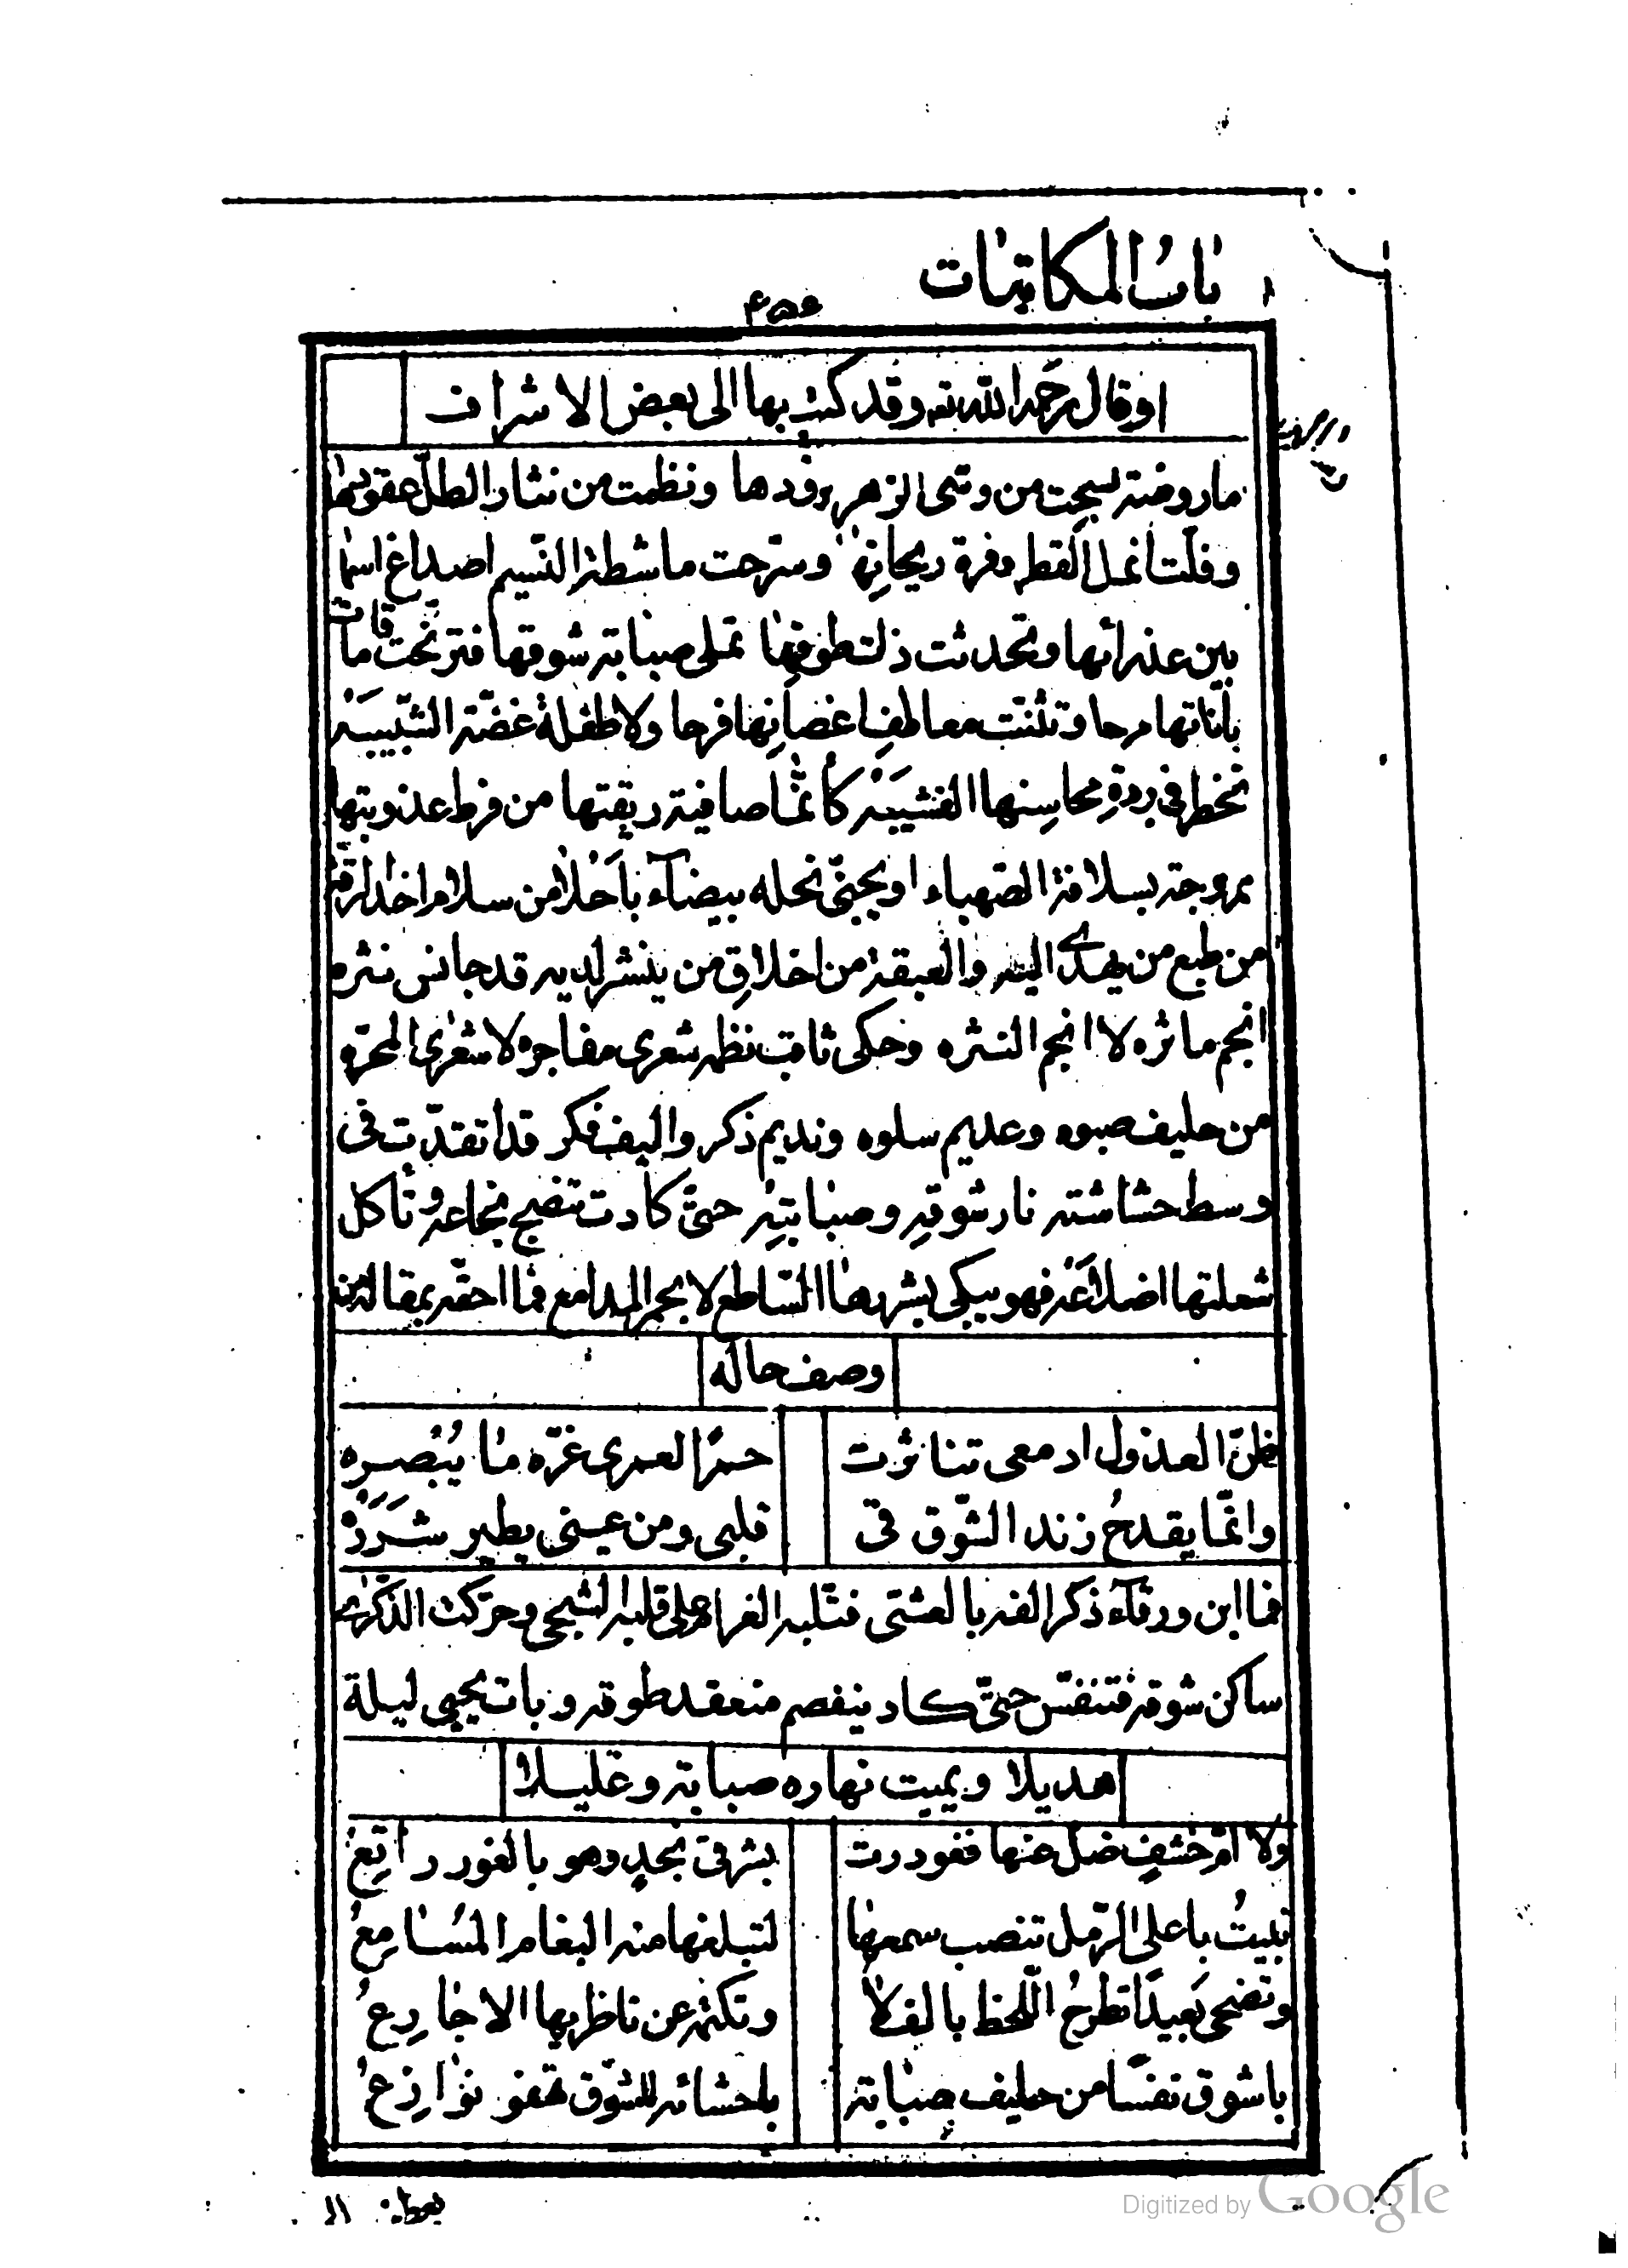 باب المكاتبات
٤٥٦
وقال رحمه الله تعه وقد كتب بها الى بعض الاشراف
ما روضة نسجت من وشى الزهر برودها ونظمت من نثار الطل عقودها
وفلّت انمل القطر وفرة ريحانها وسرّحت ماشطة النّسيم اصداغ
بين عذرائها وتحدثت ذات طوقها تملى صبابة شوقها فترنحت قامات
باناتها مرحا وتثنت معاطف اغصانها فرحا ولا طفلة غضّة الشّبيبه
تخطر فى بردة محاسنها القشيبه كأنما صافية ريقتها من فرط عذوبتها
ممزوجة بسلافة الصّهباء او بجنىّ نحله بيضآء باحلا من سلام
من طبع من يهدى اليه والعبقة من اخلاق من ينشر لديه قد جانس نثره
انجم ماثره لا انجم النثره وحكى ثاقب نظمه شعرى مفاخره لا شعرى المجرّه
من حليف صبوه وعديم سلوه ونديم ذكر واليف فكر قد اتقدت فى
وسط حشاشته نار شوقه وصبابته حتىّ كادت تنضج نخاعه وتأكل
شعلتها اضلاعه فهو يبكى بشررها السّاطع لا بجمر المدامع فما احقه بمقاله من
وصف حاله
ظنّ العذول ادمعى تناثرت حمرًا لعمرى غرّه ما يُبْصره
وانّما يقدحُ زند الشّوق فى قلبى ومن عينى يطير شَرَرُهُ
فما ابن ورقآء ذكر الفه بالعشى فتنبه الغرام على قلبه الشجى وحرّكت الذّكرى
ساكن شوقه فتنفّس حتىّ كاد ينفصم منعقد طوقه وبات يحيى ليله
هديلا ويميت نهاره صبابة وغليلا
ولا امّ خشفٍ ضلّ عنها فغودرت بشرقىّ نجدٍ وهو بالغور راتعُ
تبيتُ باعلى الرّمل تنصب سمعها لتبلغها منه البغام المسَامعُ
وتضحى بَعيدًا تطرحُ اللّحظ بالفلا وتكتمه عن ناظريها الاجارعُ
باشوق نفسًا من حليف صبابة باحشائه للشوق تهفو نوازعُ